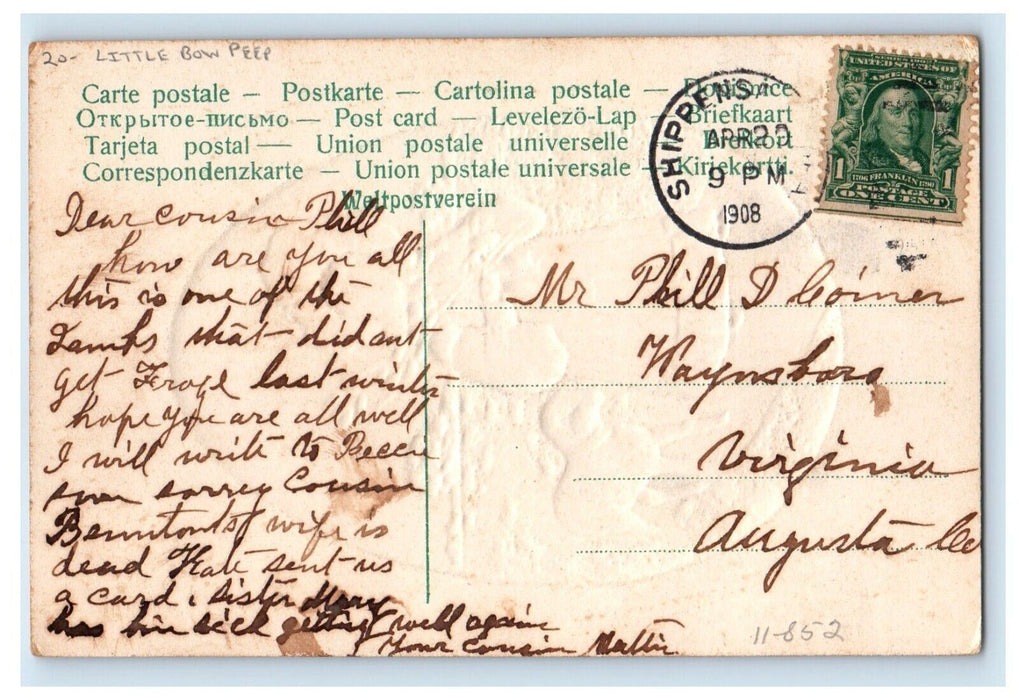 20- LITTLE BOW PEEP
Carte postale – Postkarte — Cartolina postale – Dopisnice
Открытое-письмо — Post card — Levelezö-Lap – Briefkaart
Tarjeta postal — Union postale universelle – Brefkort
Correspondenzkarte – Union postale universale – Kiriekortti.
Weltpostverein
SHIPPENSB
APR 20
9 PM
1908
SERIES 1902
UNITED STATES OF
AMERICA
1706 FRANKLIN 1790
1 POSTAGE 1
ONE CENT
Dear Cousin Phill
how are you all
this is one of the
Lambs that did ant
get Froze last winter
hope you are all well
I will write to Beccie
soon sorrey Cousin
wife is
dead Kate sent us
a card, sister Mary
has bin sick getting well again
Your Cousin Mattie
Mr Phill D Coiner
Waynsboro
Virginia
Augusta Co
11-852